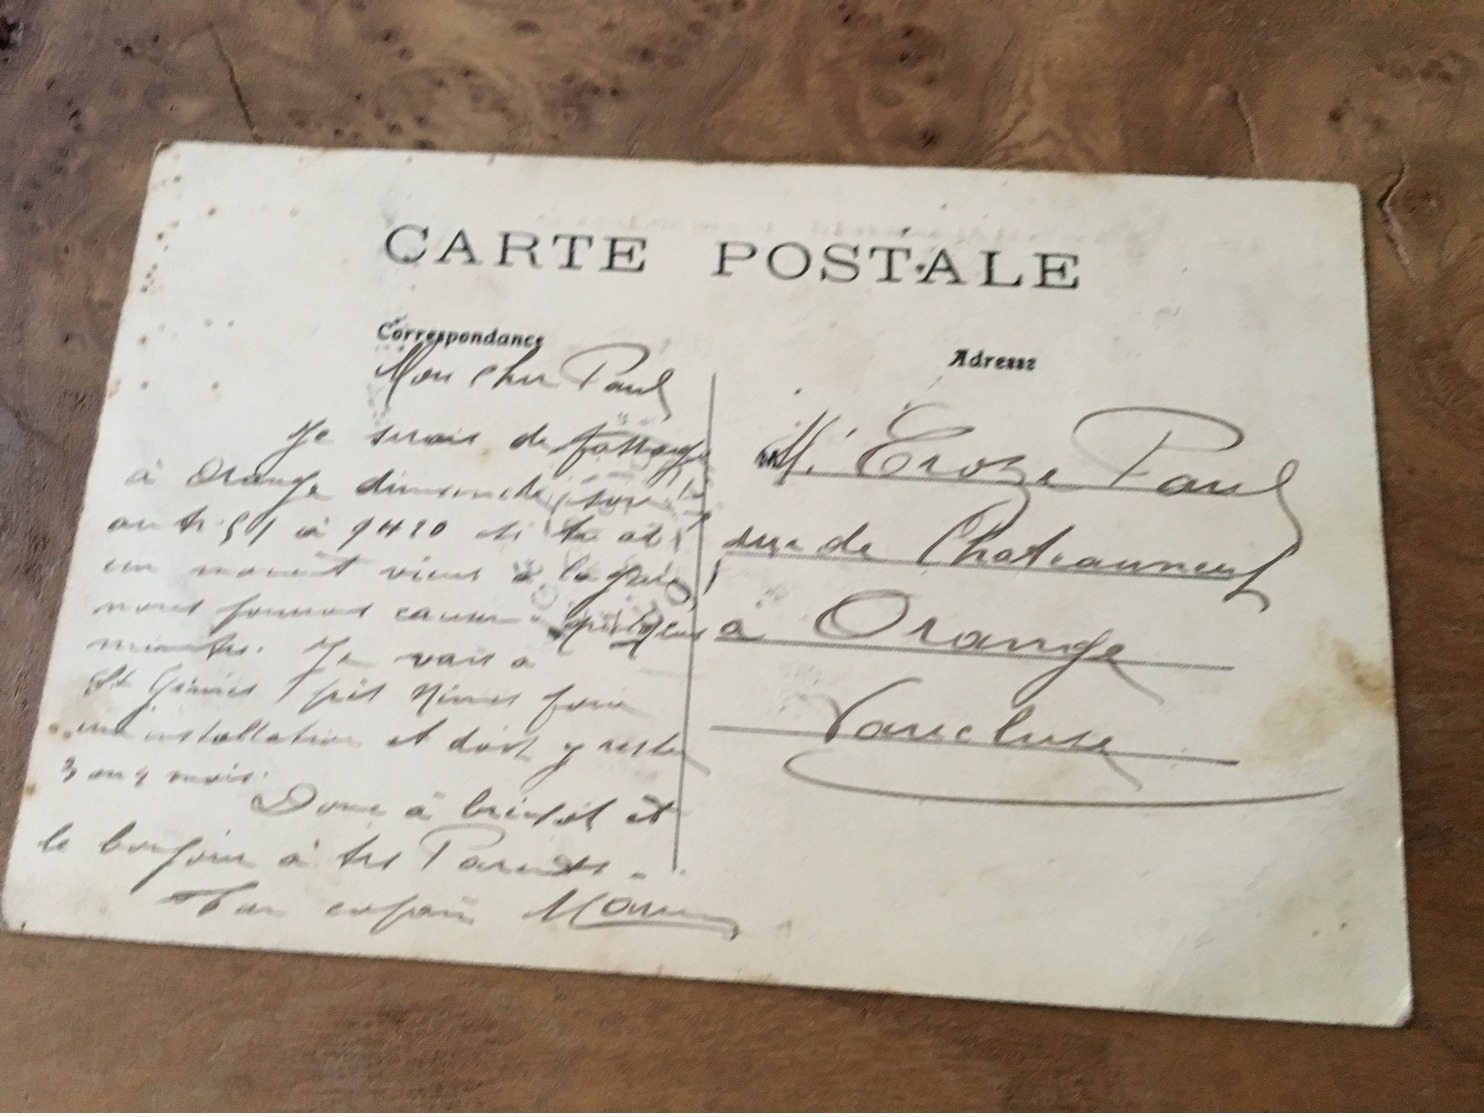 CARTE POSTALE
Correspondance
Adresse
Mon cher Paul
Je serais de passage
à Orange dimanche soir
à 9H10 si tu as
un moment viens à la gare
nous pourrons causer quelques
minutes. Je vais à
St Geniès près Nimes faire
une installation et dois y rester
3 ou 4 mois.
Donc à bientôt et
le bonjour à tes Parents.
Ton copain
Mr Croze Paul
rue de Chateauneuf
à Orange
Vaucluse